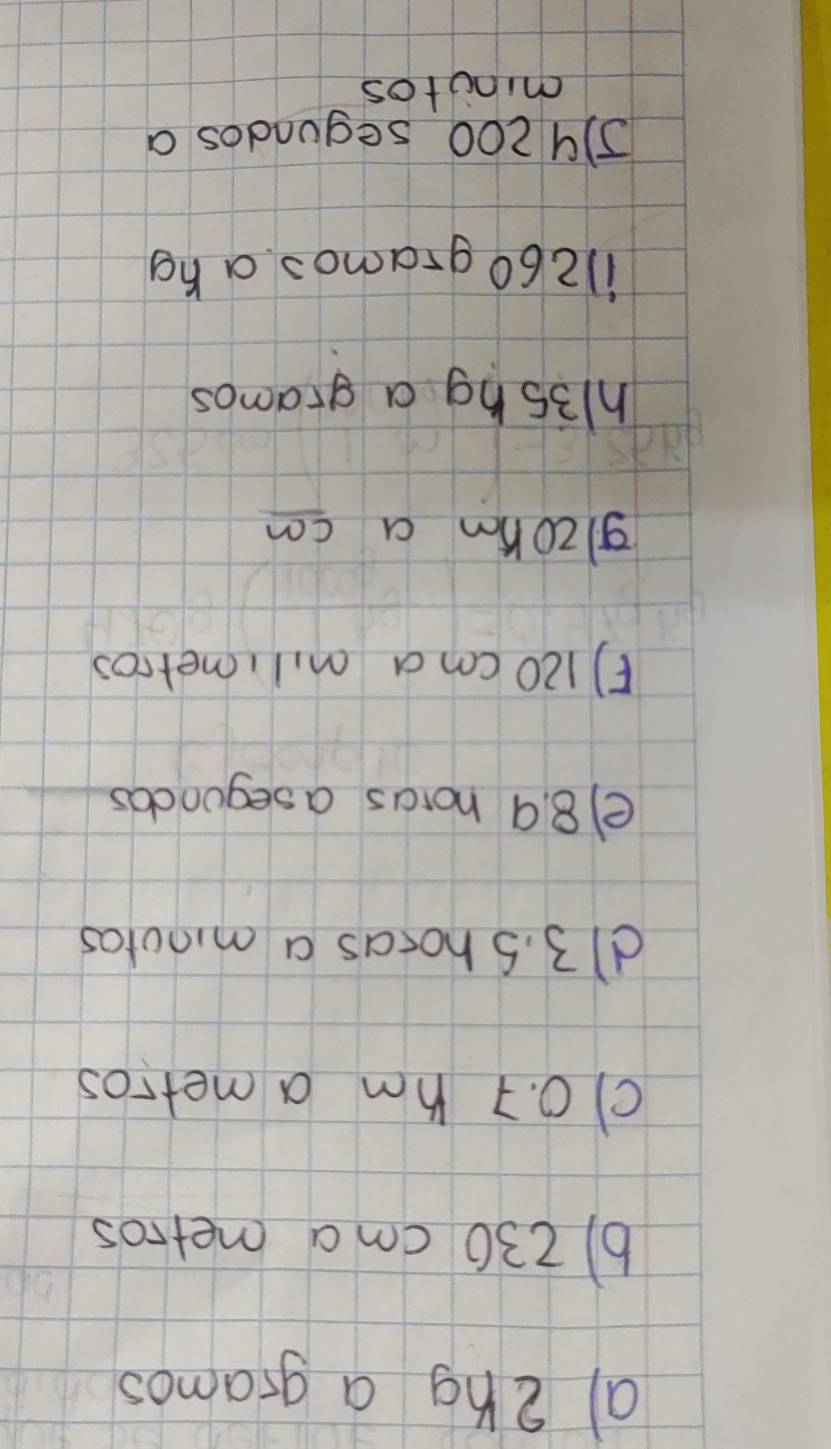 a) 2 kg a gramos
b) 230 cm a metros
c) 0.7 km a metros
d) 3.5 horas a minutos
e) 8.9 horas a segundos
F) 120 cm a milimetros
g) 20 km a cm
h) 35 kg a gramos
i) 260 gramos a kg
J) 4 200 segundos a
minutos